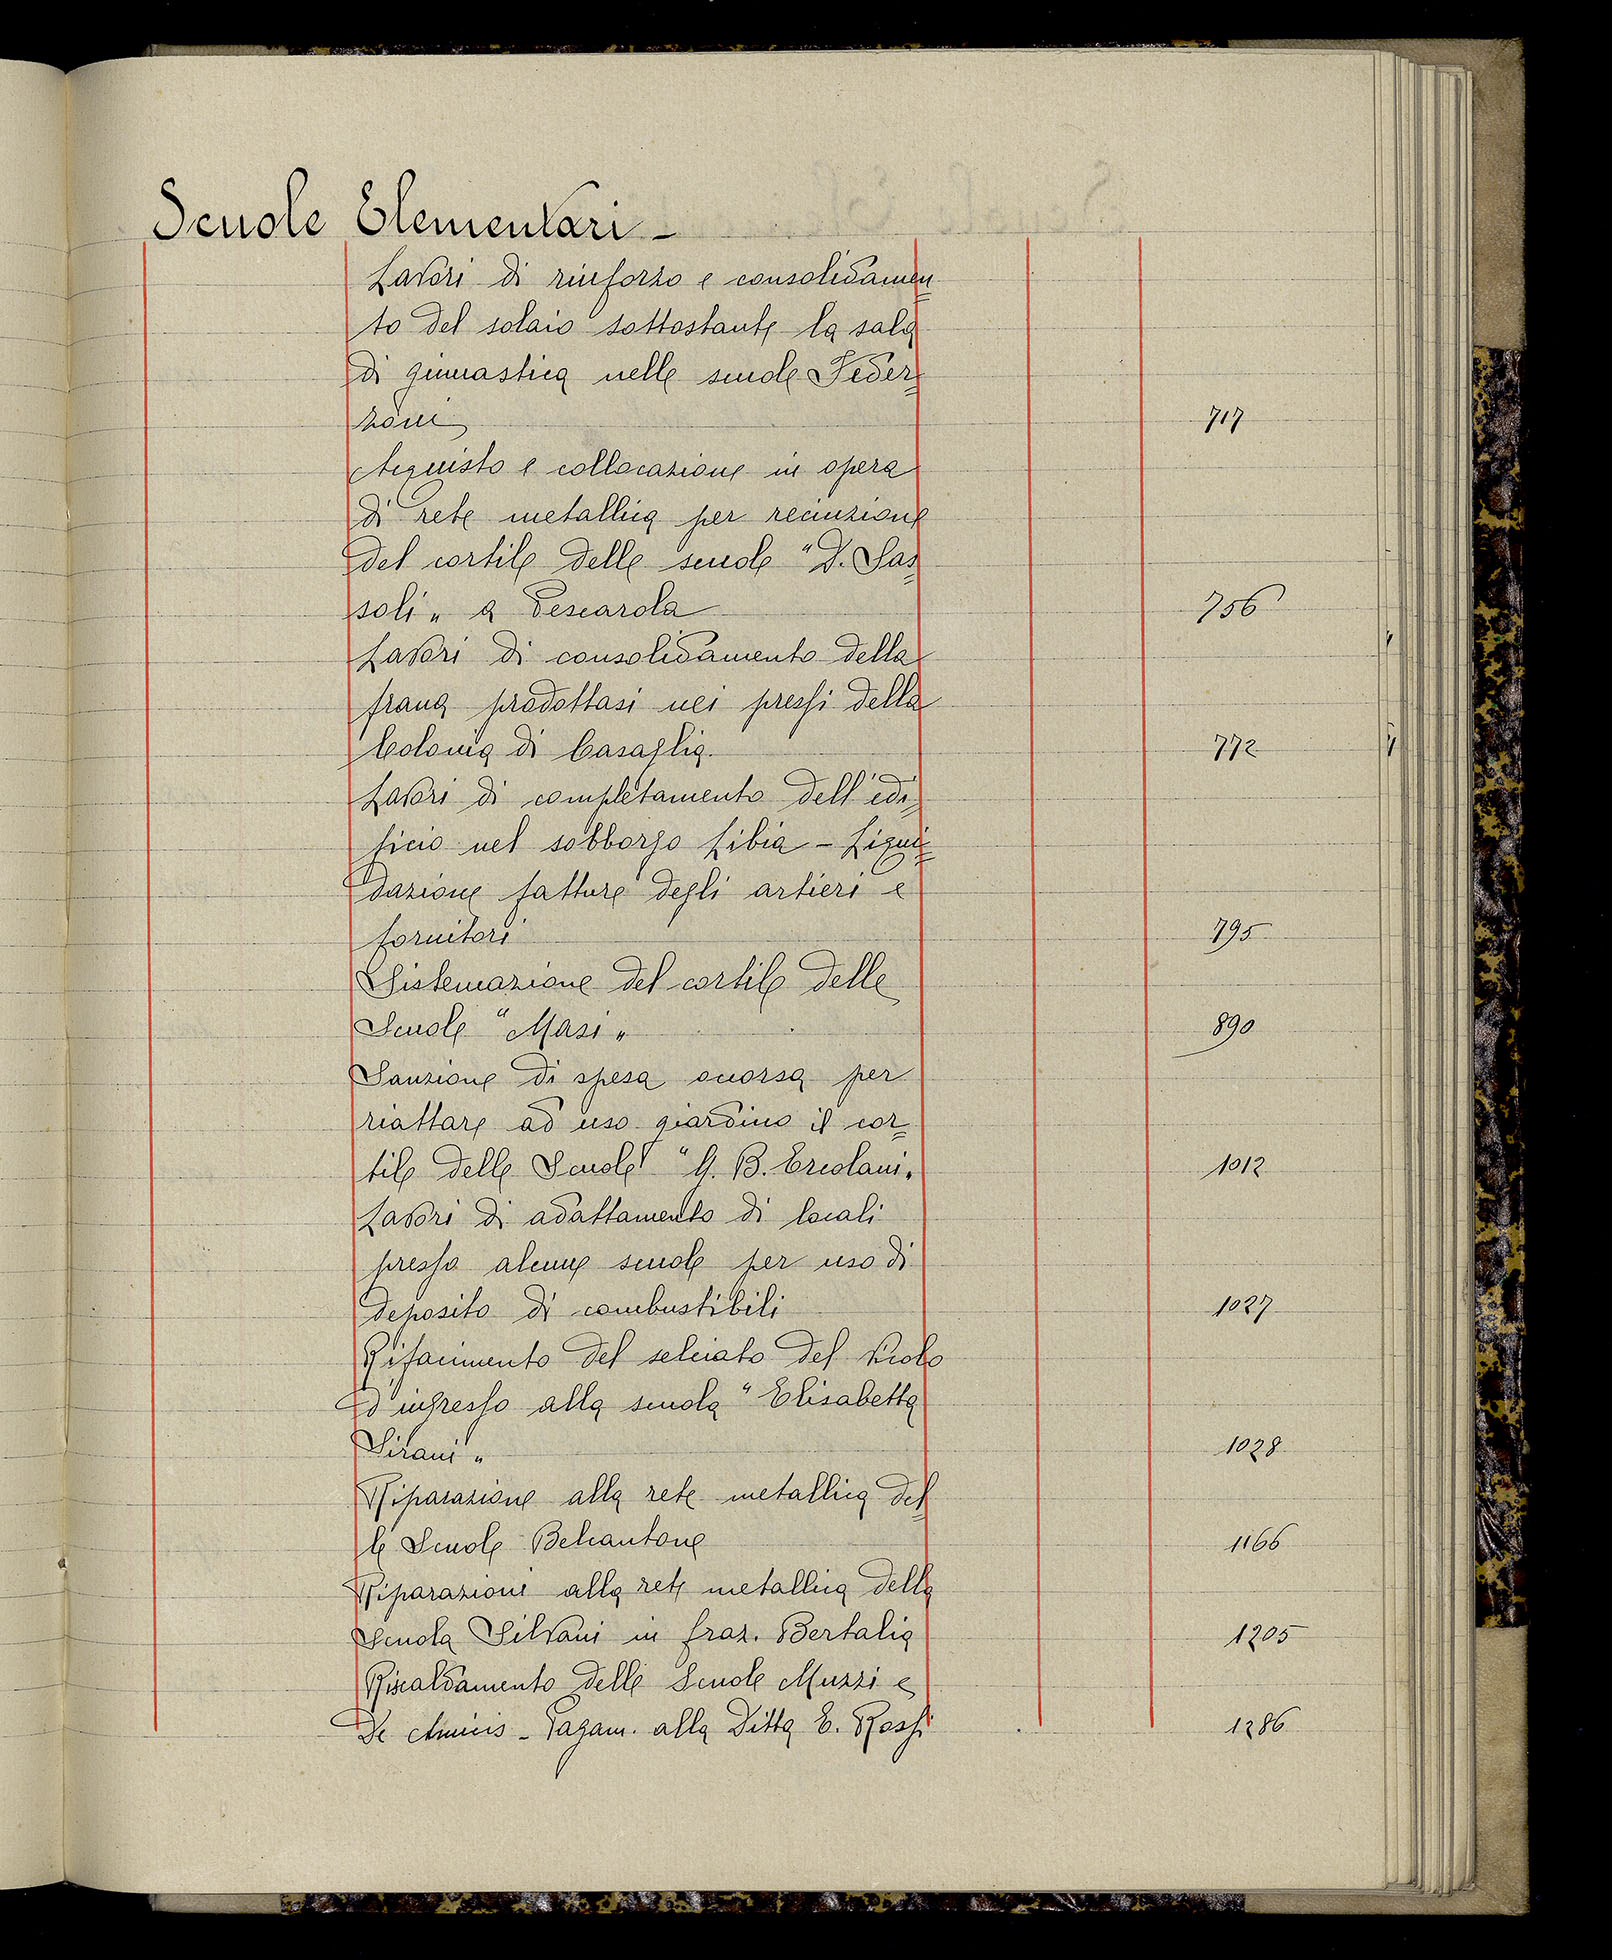 Scuole Elementari -
Lavori di rinforzo e consolidamen=
to del solaio sottostante la sala
di ginnastica nelle scuole Feder=
zoni 717
Acquisto e collocazione in opera
di rete metallica per recinzione
del cortile delle scuole "D. Sas=
soli" a Pescarola 756
Lavori di consolidamento della
frana prodottasi nei pressi della
Colonia di Casaglia. 772
Lavori di completamento dell'edi=
ficio nel sobborgo Libia - Liqui=
dazione fatture degli artieri e
fornitori 795
Sistemazione del cortile delle
Scuole "Masi" 890
Sanzione di spesa occorsa per
riattare ad uso giardino il cor=
tile delle Scuole "G. B. Ercolani" 1012
Lavori di adattamento di locali
presso alcune scuole per uso di
deposito di combustibili 1027
Rifacimento del selciato del viale
d'ingresso alla scuola "Elisabetta
Sirani" 1028
Riparazione alla rete metallica del=
le Scuole Belcantone 1166
Riparazioni alla rete metallica della
Scuola Silvani in fraz. Bertalia 1205
Riscaldamento delle Scuole Muzzi e
De Amicis - Pagam. alla Ditta E. Rossi 1286